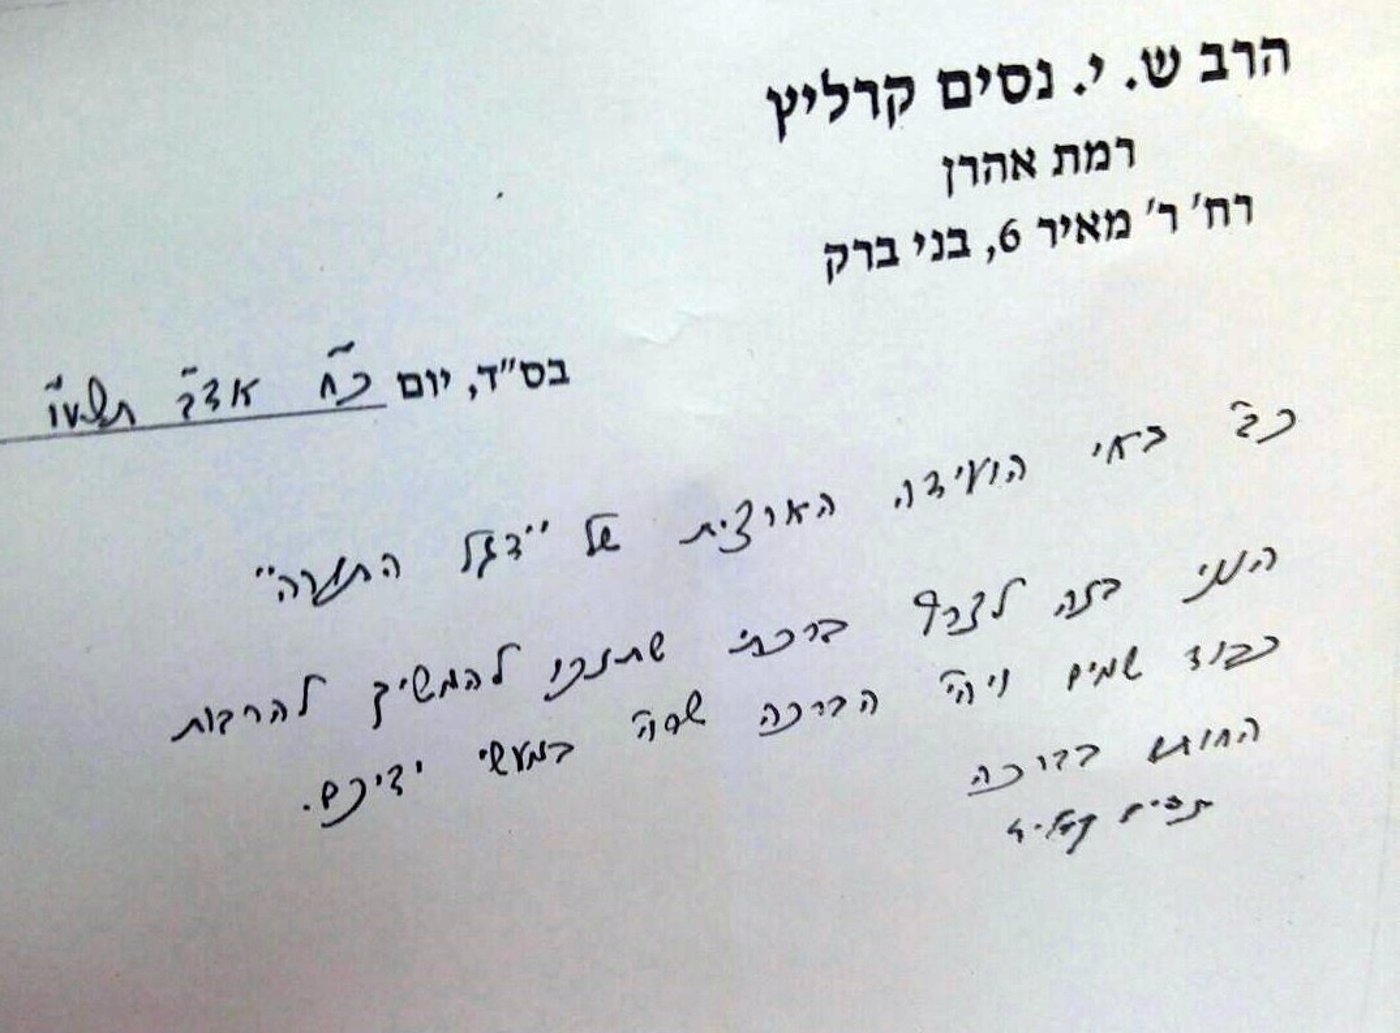 הרב ש. י. נסים קרליץ
רמת אהרן
רח' ר' מאיר 6, בני ברק
בס"ד, יום כ"ח אד"ב תשע"ו
כב' באי הועידה הארצית של "דגל התורה"
הנני בזה לצרף ברכתי שתזכו להמשיך להרבות
כבוד שמים ויהי' הברכה שרוי' במעשי ידיכם.
החותם בברכה
נסים קרליץ